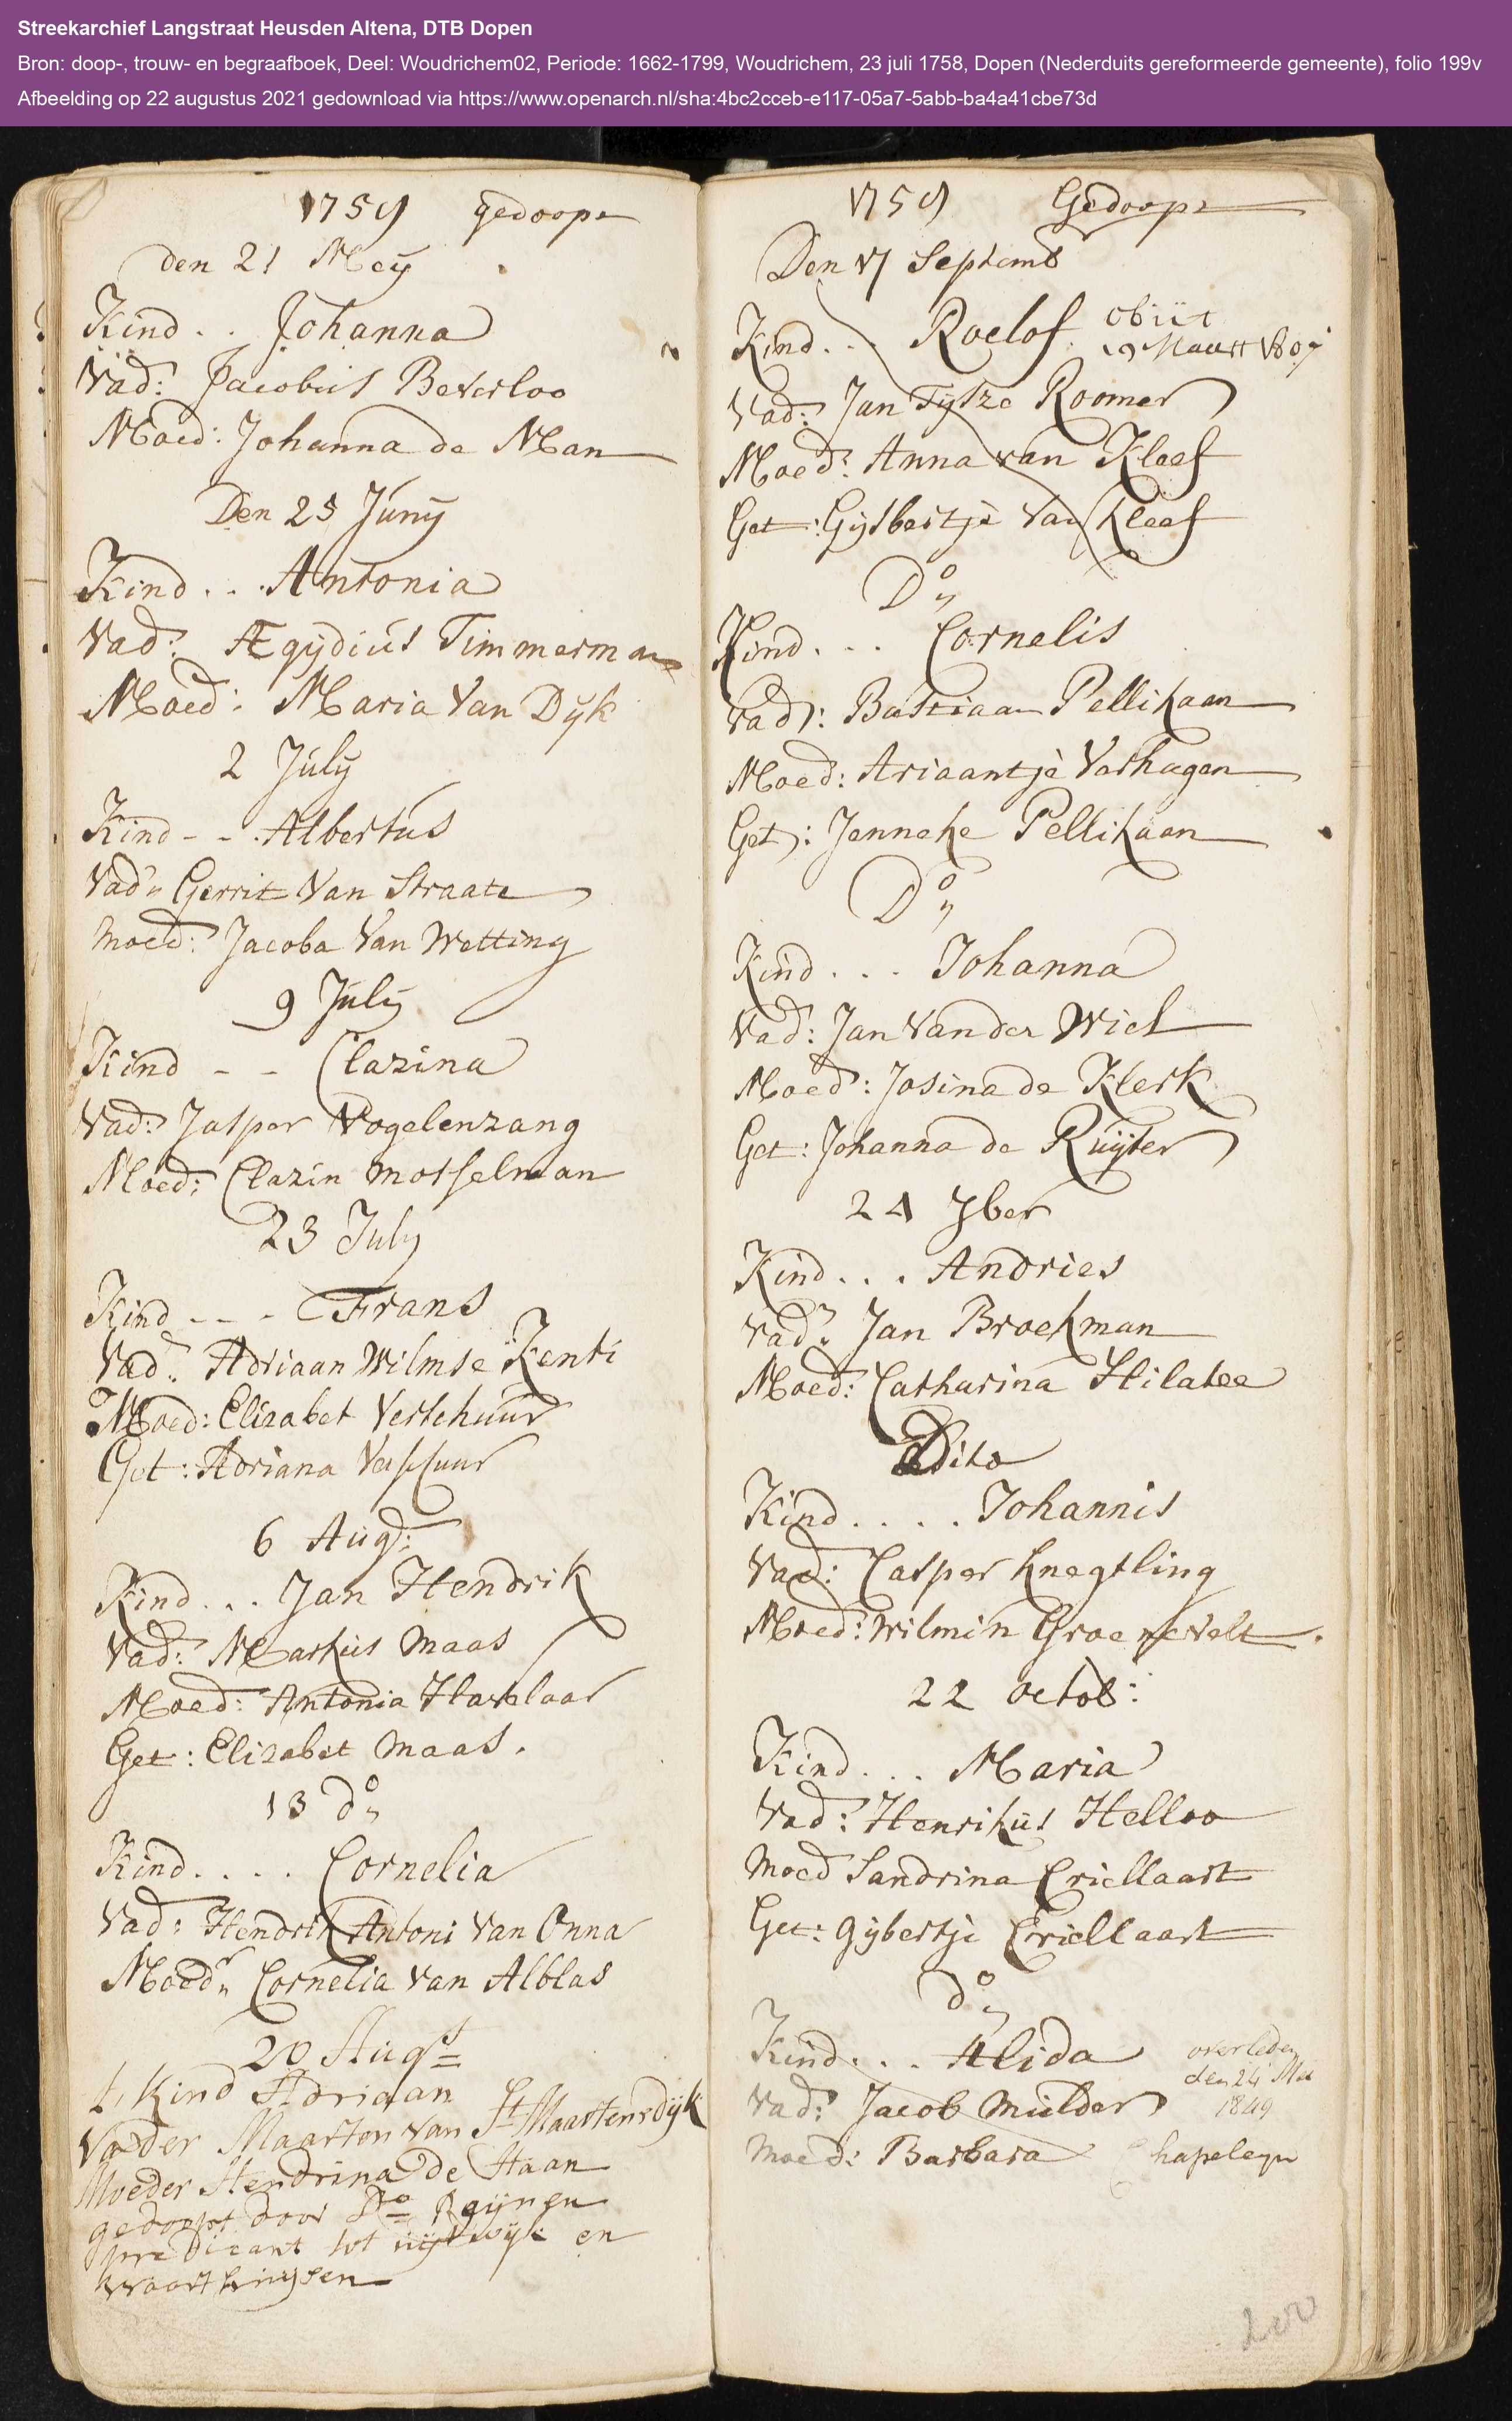 Streekarchief Langstraat Heusden Altena, DTB Dopen
Bron: doop-, trouw- en begraafboek, Deel: Woudrichem02, Periode: 1662-1799, Woudrichem, 23 juli 1758, Dopen (Nederduits gereformeerde gemeente), folio 199v
Afbeelding op 22 augustus 2021 gedownload via https://www.openarch.nl/sha:4bc2cceb-e117-05a7-5abb-ba4a41cbe73d
1759 gedoopt
den 21 Meÿ
Kind . . Johanna
Vad: Jacobus Beverloo
Moed: Johanna de Man
Den 25 Junÿ
Kind . . . Antonia
Vad: Ægÿdius Timmerman
Moed: Maria Van Dÿk
2 Julÿ
Kind - - . Albertus
Vad„ Gerrit Van Straate
Moed: Jacoba Van Wetting
9 Julÿ
Kind - - Clazina
Vad: Jasper Vogelenzang
Moed: Clazin Mosselman
23 July
Kind - - - Frans
Vad: Adriaan Wilmse
Moed: Elizabet Verschuur
Get: Adriana Verschuur
6 Aug:
Kind . . . Jan Hendrik
Vad: Markus Maas
Moed: Antonia
Get: Elizabet Maas.
13 do„
Kind . . . . Cornelia
Vad: Hendrik Antoni Van Onna
Moed„ Cornelia Van Alblas
20 Augst
Kind Adriaan
Vader Maarten van St Maartensdÿk
Moeder Hendrina de Haan
gedoopt door Do Reijnen
predicant tot uijtwijk en
waarthuijsen
1759 Gedoopt
Den 17 Septemb
Kind . . . Roelof. obiit
19 Maart 1807
Vad: Jan Tÿsze Roomer
Moed: Anna van Kleef
Get: Gÿsbertje van Kleef
Do„
Kind . . . Cornelis
Vad: Bastiaan Pellikaan
Moed: Ariaantje Verhagen
Get: Jenneke Pellikaan
Do„
Kind . . . Johanna
Vad: Jan Vander Wiel
Moed: Josina de Klerk
Get: Johanna de Ruÿter
24 7ber
Kind . . . Andries
Vad„ Jan Broekman
Moed: Catharina Hilatee
Dito
Kind . . . . Johannis
Vad: Casper Knegtling
Moed: Wilmin Groenevelt.
22 Octob:
Kind . . . Maria
Vad: Henrikus Helloo
Moed Sandrina Criellaart
Get: Gÿbertje Criellaart
do„
Kind . . . Alida overleden
den 24 Mei
1849
Vad: Jacob Mulder
Moed: Barbara Chapeleyn
200